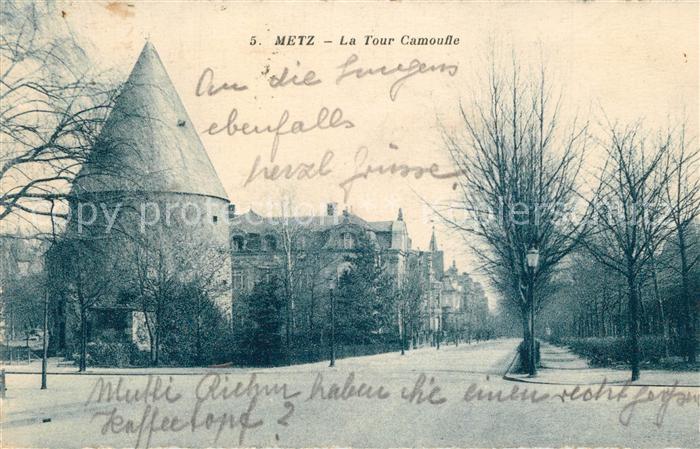 5. METZ – La Tour Camoufle
An die Jungens
ebenfalls
herzl Grüsse.
Copyright Koutersschutz
Mutti Riehm haben Sie einen recht großen
Kaffeetopf?